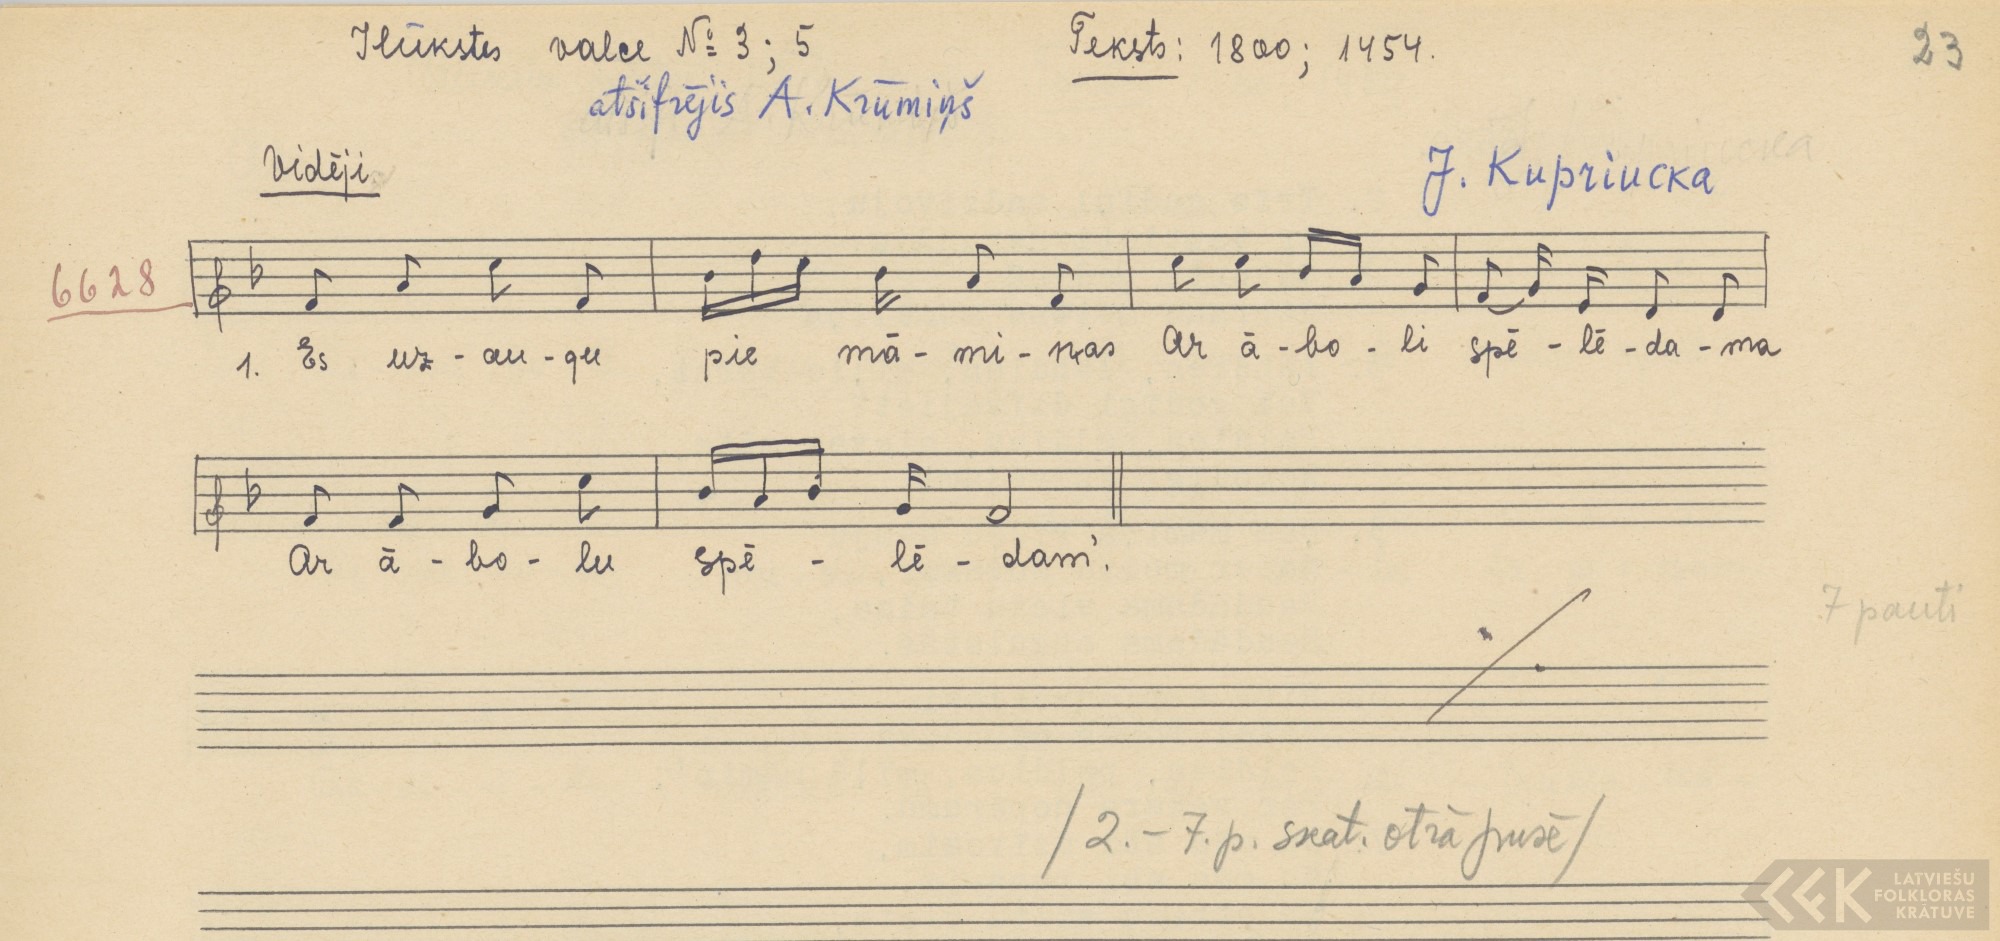 Ilūkstes valce № 3; 5 Teksts: 1800; 1454. 23
atšifrējis A. Krūmiņš
Vidēji J. Kupriucka
6628
1. Es uz - au - gu pie mā - mi - ņas Ar ā - bo - li spē - lē - da - ma
Ar ā - bo - lu spē - lē - dam'.
7 panti
/2. - 7. p. skat. otrā pusē/
LATVIEŠU
FOLKLORAS
KRĀTUVE